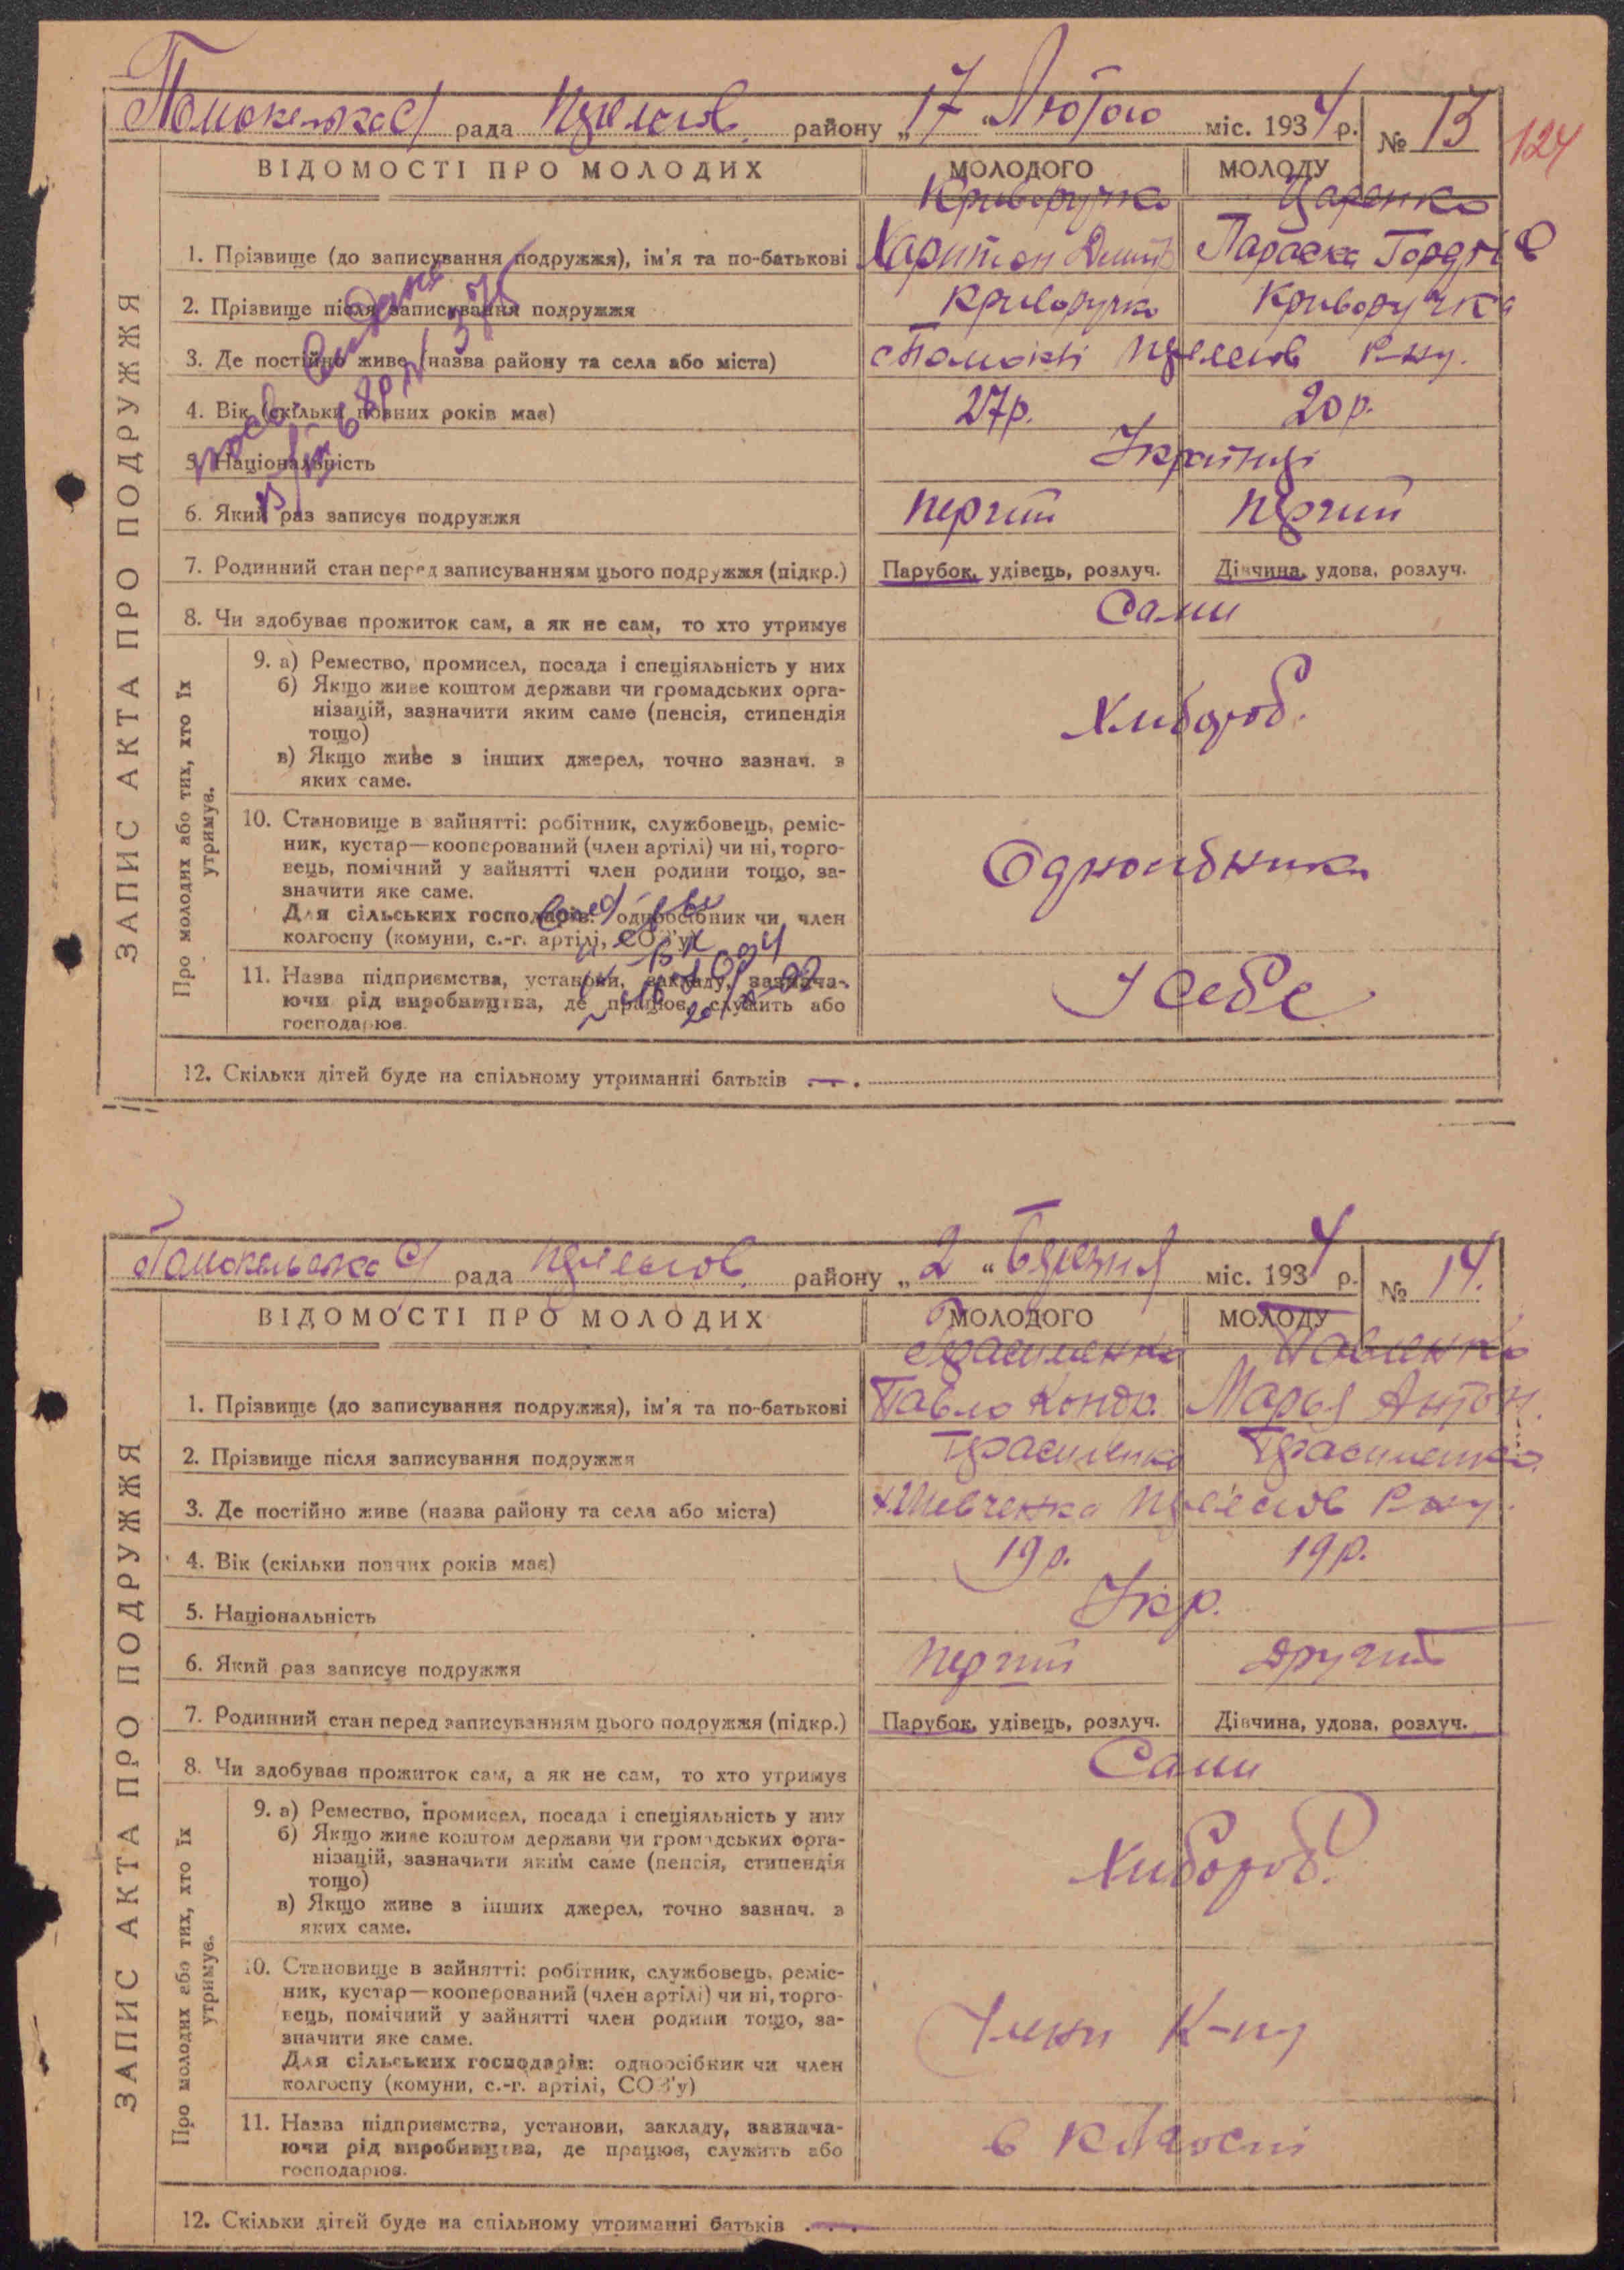 рада района „ 17 “ Лютого міс. 1934 р. № 13
124
ВІДОМОСТІ ПРО МОЛОДИХ МОЛОДОГО МОЛОДУ
Криворучко Царенко
1. Прізвище (до записування подружжя), ім'я та по-батькові Харитон Дмитр Параска Гордії
2. Прізвище після записування подружжя Криворучко Криворучко
3. Де постійно живе (назва району та села або міста) р-ну.
4. Вік (скільки повних років має) 27р. 20р.
5. Національність Українці
6. Який раз записує подружжя перший перший
7. Родинний стан перед записуванням цього подружжя (підкр.) Парубок, удівець, розлуч. Дівчина, удова, розлуч.
8. Чи здобуває прожиток сам, а як не сам, то хто утримує Сами
ЗАПИС АКТА ПРО ПОДРУЖЖЯ
Про молодих або тих, хто їх утримує.
9. а) Ремество, промисел, посада і спеціяльність у них
б) Якщо живе коштом держави чи громадських орга-
нізацій, зазначити яким саме (пенсія, стипендія
тощо)
Хлібороб.
в) Якщо живе з інших джерел, точно зазнач. з
яких саме.
10. Становище в зайнятті: робітник, службовець, реміс-
ник, кустар—кооперований (член артілі) чи ні, торго-
вець, помічний у зайнятті член родини тощо, за-
значити яке саме.
Для сільських господарів: одноосібник чи член
колгоспу (комуни, с.-г. артілі, СОЗ'у)
11. Назва підприємства, установи, закладу, зазнача-
ючи рід виробництва, де працює, служить або
господарює.
У себе
12. Скільки дітей буде на спільному утриманні батьків — .
рада району „ 2 “ Березня міс. 1934 р. № 14.
ВІДОМОСТІ ПРО МОЛОДИХ МОЛОДОГО МОЛОДУ
Павленко
1. Прізвище (до записування подружжя), ім'я та по-батькові Павло Кондр. Марья Антон.
2. Прізвище після записування подружжя
3. Де постійно живе (назва району та села або міста) х.Шевченка р-ну.
4. Вік (скільки повних років має) 19р. 19р.
5. Національність Укр.
6. Який раз записує подружжя перший другий
7. Родинний стан перед записуванням цього подружжя (підкр.) Парубок, удівець, розлуч. Дівчина, удова, розлуч.
8. Чи здобуває прожиток сам, а як не сам, то хто утримує Сами
ЗАПИС АКТА ПРО ПОДРУЖЖЯ
Про молодих або тих, хто їх утримує.
9. а) Ремество, промисел, посада і спеціяльність у них
б) Якщо живе коштом держави чи громадських орга-
нізацій, зазначити яким саме (пенсія, стипендія
тощо)
Хлібороб.
в) Якщо живе з інших джерел, точно зазнач. з
яких саме.
10. Становище в зайнятті: робітник, службовець, реміс-
ник, кустар—кооперований (член артілі) чи ні, торго-
вець, помічний у зайнятті член родини тощо, за-
значити яке саме.
Члени к-пу
Для сільських господарів: одноосібник чи член
колгоспу (комуни, с.-г. артілі, СОЗ'у)
11. Назва підприємства, установи, закладу, зазнача-
ючи рід виробництва, де працює, служить або
господарює.
в колгоспі
12. Скільки дітей буде на спільному утриманні батьків . — .